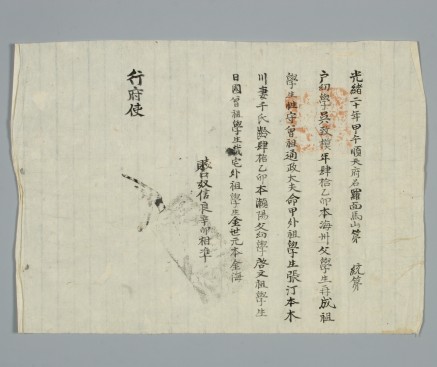 光緖二十年甲午順天府右羅面馬山第　統第
戶幼學吳致 年肆拾乙卯本海州父學生 成祖
學生 守曾祖通政大夫命甲外祖學生張汀本木
川妻千氏齡肆拾乙卯本潁陽父幼學啓文祖學生
日國曾祖學生成宅外祖學生金世元本金海
賤口奴信良辛卯相準
行府使